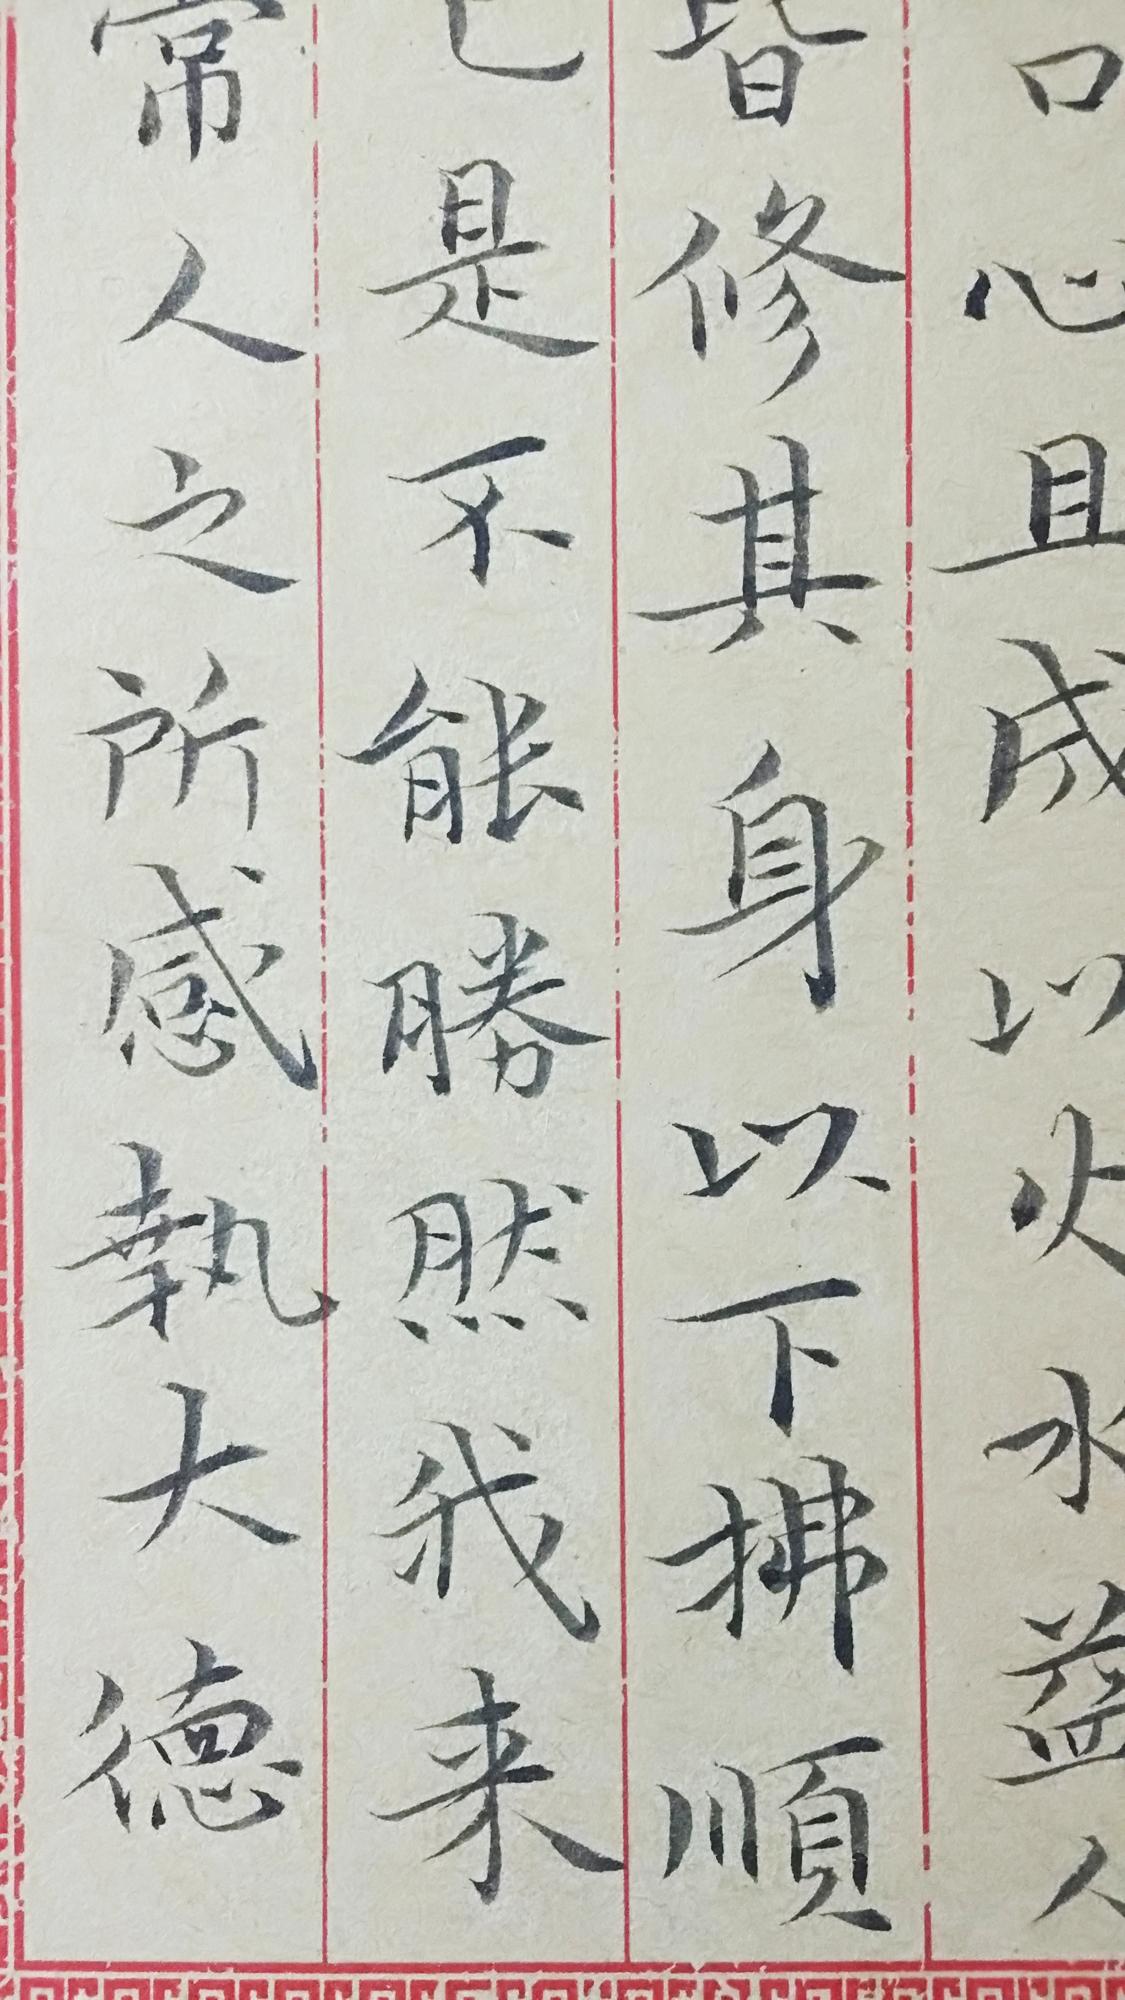 口心且成以火水益人
皆修其身以下拂順
已是不能勝然我来
常人之所感執大德